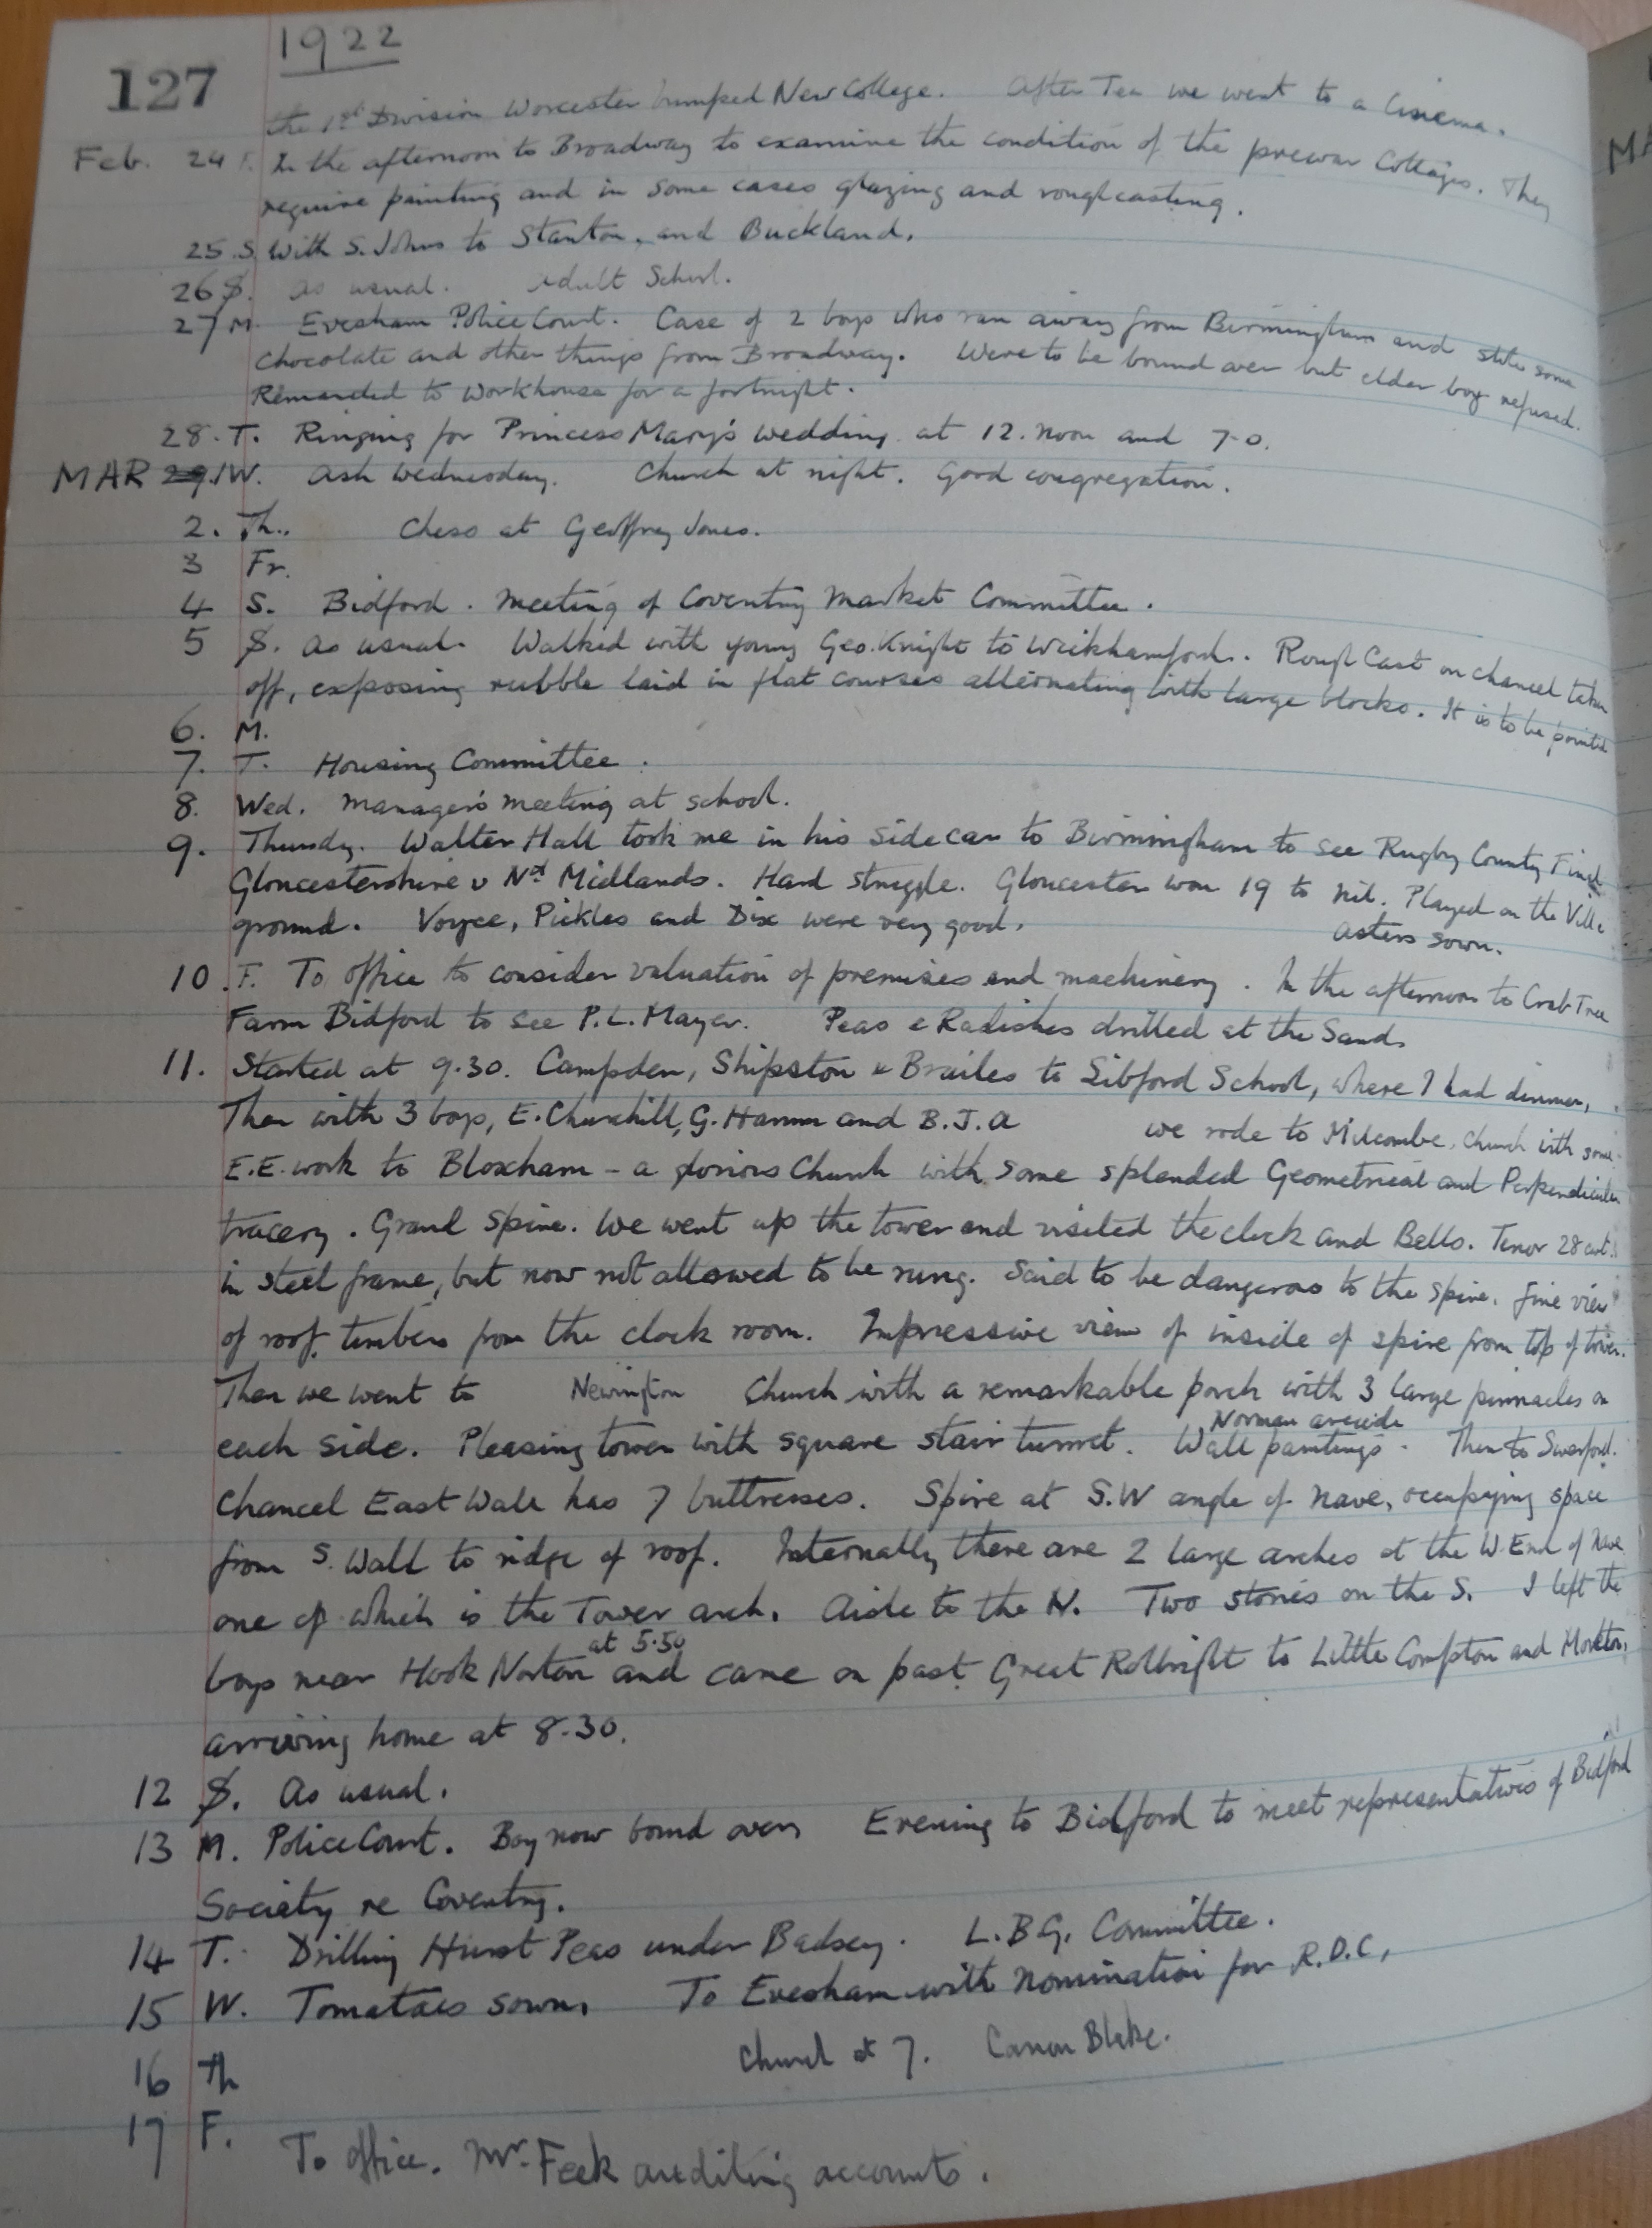 127
1922
the 1st Division Worcester bumped New College. After Tea we went to a Cinema.
Feb. 24 F. In the afternoon to Broadway to examine the condition of the prewar Cottages. They
require painting and in some cases glazing and roughcasting.
25. S. With S. Johns to Stanton, and Buckland.
26 S. As usual. Adult School.
27 M. Evesham Police Court. Case of 2 boys who ran away from Birmingham and stole some
chocolate and other things from Broadway. Were to be bound over but elder boy refused.
Remanded to Workhouse for a fortnight.
28. T. Ringing for Princess Mary's wedding at 12. noon and 7-0.
MAR 29. 1 W. Ash Wednesday. Church at night. Good congregation.
2. Th.. Chess at Geoffrey Jones.
3 Fr.
4 S. Bidford. Meeting of Coventry Market Committee.
5 S. As usual. Walked with young Geo. Knight to Wickhamford. Rough Cast on chancel taken
off, exposing rubble laid in flat courses alternating with large blocks. It is to be pointed
6. M.
7. T. Housing Committee.
8. Wed. Managers meeting at school.
9. Thursday. Walter Hall took me in his sidecar to Birmingham to see Rugby County Final
Gloucestershire v Nth Midlands. Hard struggle. Gloucester won 19 to nil. Played on the Villa
ground. Voyce, Pickles and Dix were very good. Asters sown.
10. F. To office to consider valuation of premises and machinery. In the afternoon to Crab Tree
Farm Bidford to see P.L. Mayer. Peas & Radishes drilled at the Sands
11. Started at 9.30. Campden, Shipston & Brailes to Sibford School, where I had dinner,
Then with 3 boys, E. Churchill, G. and B.J.A we rode to Milcombe, Church with some
E.E. work to Bloxham – a glorious Church with some splended Geometrical and Perpendicular
tracery. Grand Spire. We went up the tower and visited the clock and Bells. Tenor 28 cwt.
in steel frame, but now not allowed to be rung. Said to be dangerous to the spire. Fine view
of roof timbers from the clock room. Impressive view of inside of spire from top of tower.
Then we went to Newington Church with a remarkable porch with 3 large pinnacles on
each side. Pleasing tower with square stair turret. Wall paintings. Norman arcade Then to Swerford.
Chancel East Wall has 7 buttresses. Spire at S.W angle of nave, occupying space
from S. Wall to ridge of roof. Internally there are 2 large arches at the W. End of nave
one of which is the Tower arch. Aisle to the N. Two stories on the S. I left the
boys near Hook Norton at 5.50 and came on past Great Rollright to Little Compton and Moreton,
arriving home at 8.30.
12 S. As usual.
13 M. Police Court. Boy now bound over Evening to Bidford to meet representatives of Bidford
Society re Coventry.
14 T. Drilling Hurst Peas under Badsey. L.B.G. Committee.
15 W. Tomatoes sown. To Evesham with nomination for R.D.C.
Church at 7. Canon Blake.
16 Th
17 F. To office. Mr. Feek auditing accounts.